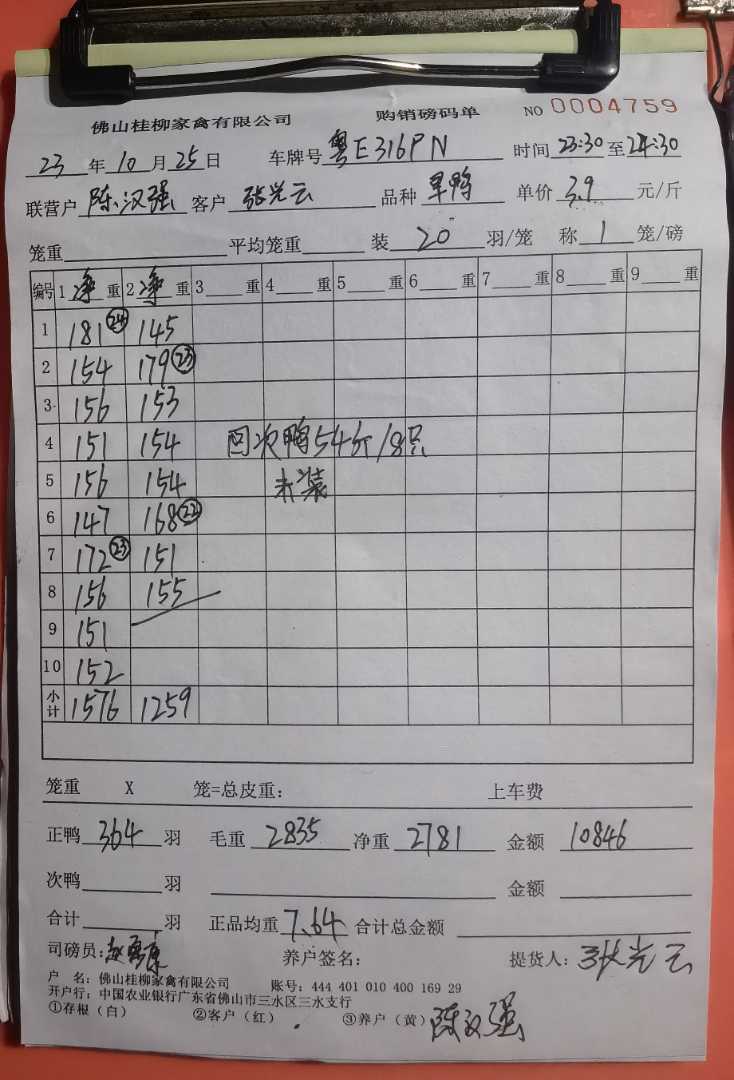 佛山桂柳家禽有限公司 购销磅码单 NO 0004759
23年10月25日 车牌号 粤E316PN 时间 23:30至24:30
联营户 陈汉强 客户 张光云 品种 旱鸭 单价 3.9 元/斤
笼重 平均笼重 装 20 羽/笼 称 1 笼/磅
编号 1 净 重 2 净 重 3 重 4 重 5 重 6 重 7 重 8 重 9 重
1 181 24 145
2 154 179 23
3 156 153
4 151 154 回次鸭54斤/8只
5 156 154 未装
6 147 168 22
7 172 23 151
8 156 155
9 151
10 152
小计 1576 1259
笼重 X 笼=总皮重: 上车费
正鸭 364 羽 毛重 2835 净重 2781 金额 10846
次鸭 羽 金额
合计 羽 正品均重 7.64 合计总金额
司磅员: 养户签名: 提货人: 张光云
户 名: 佛山桂柳家禽有限公司 账号: 444 401 010 400 169 29
开户行: 中国农业银行广东省佛山市三水区三水支行
①存根(白) ②客户(红) ③养户(黄) 陈汉强